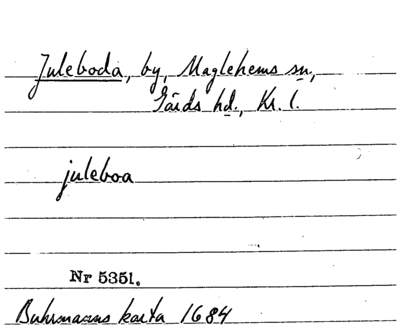 Juleboda, by, Maglehems sn,
Gärds hd., Kr. l.
juleboa
Nr 5351.
Buhrmanns karta 1684